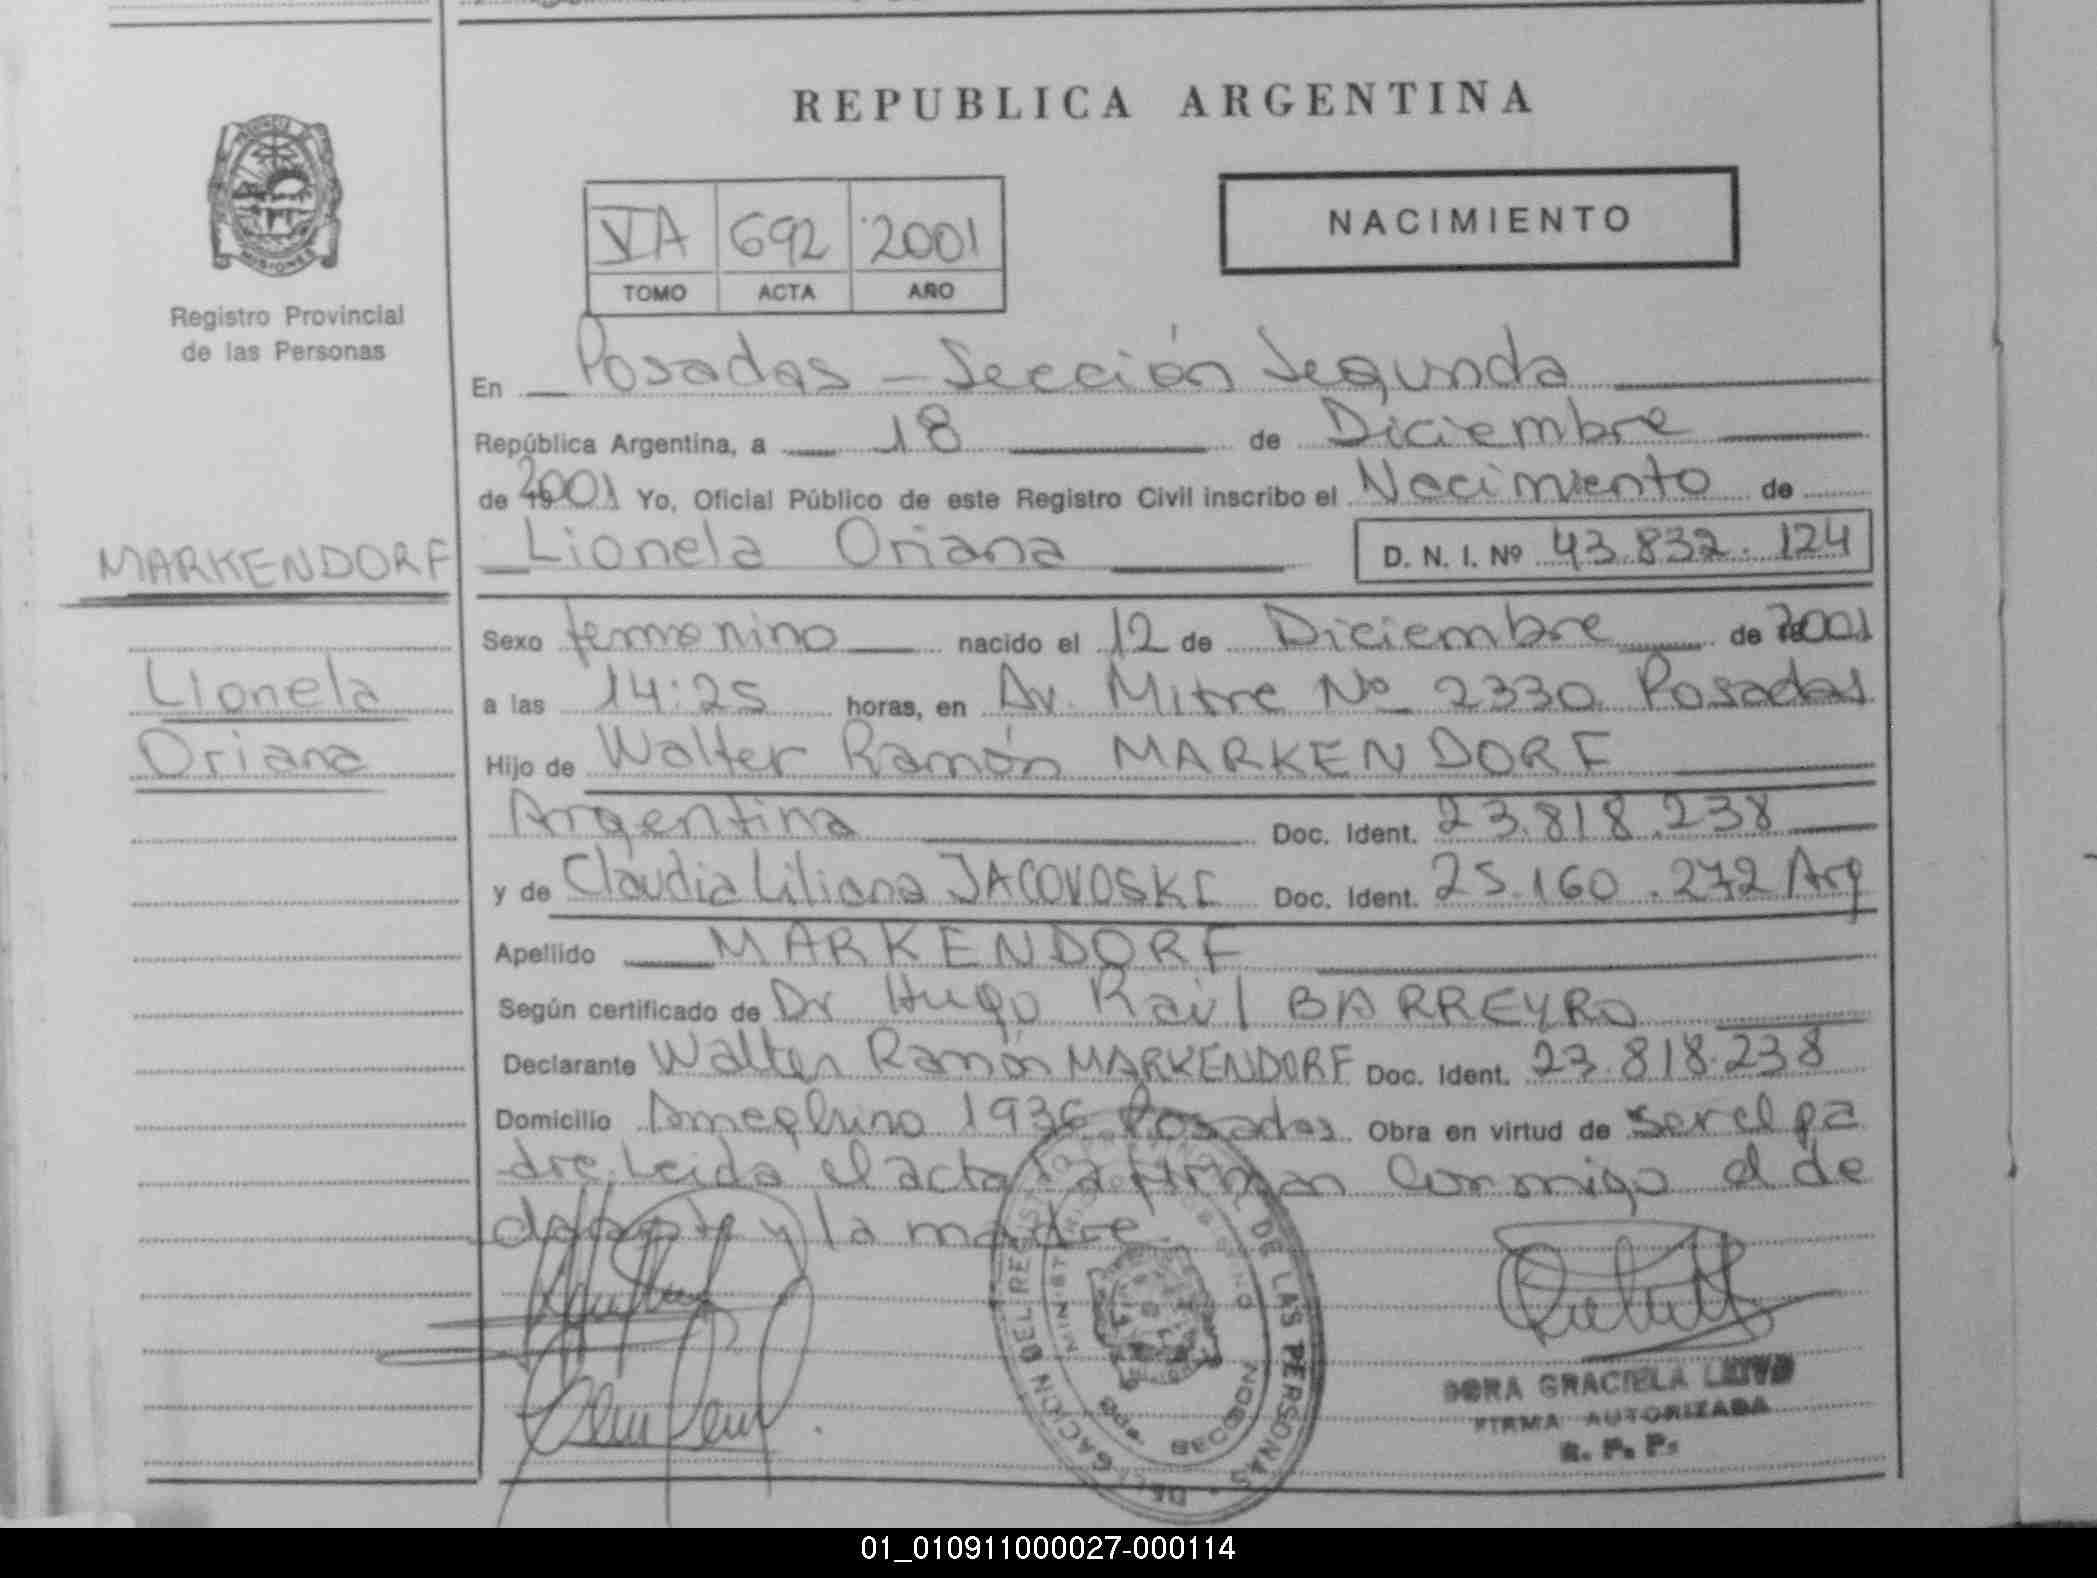 REPUBLICA ARGENTINA
NACIMIENTO
VA 692 2001
TOMO ACTA AÑO
MISIONES
Registro Provincial
de las Personas
En Posadas - Sección Segunda
República Argentina, a 18 de Diciembre
de 2001 Yo, Oficial Público de este Registro Civil inscribo el Nacimiento de
MARKENDORF
Lionela Oriana D. N. I. Nº 43.832.124
Sexo femenino nacido el 12 de Diciembre de 2001
Lionela
a las 14:25 horas, en Av. Mitre Nº 2330 Posadas
Oriana
Hijo de Walter Ramón MARKENDORF
Argentina Doc. Ident. 23.818.238
y de Claudia Liliana JACOVOSKI Doc. Ident. 25.160.272 Arg
Apellido MARKENDORF
Según certificado de Dr Hugo Raúl BARREYRO
Declarante Walter Ramón MARKENDORF Doc. Ident. 23.818.238
Domicilio Ameghino 1936 Posadas Obra en virtud de ser el pa
dre. Leida el acta la firman conmigo el de
clarante y la madre
DELEGACION DEL REGISTRO DE LAS PERSONAS
DORA GRACIELA
FIRMA AUTORIZADA
R. P. P.
01_010911000027-000114